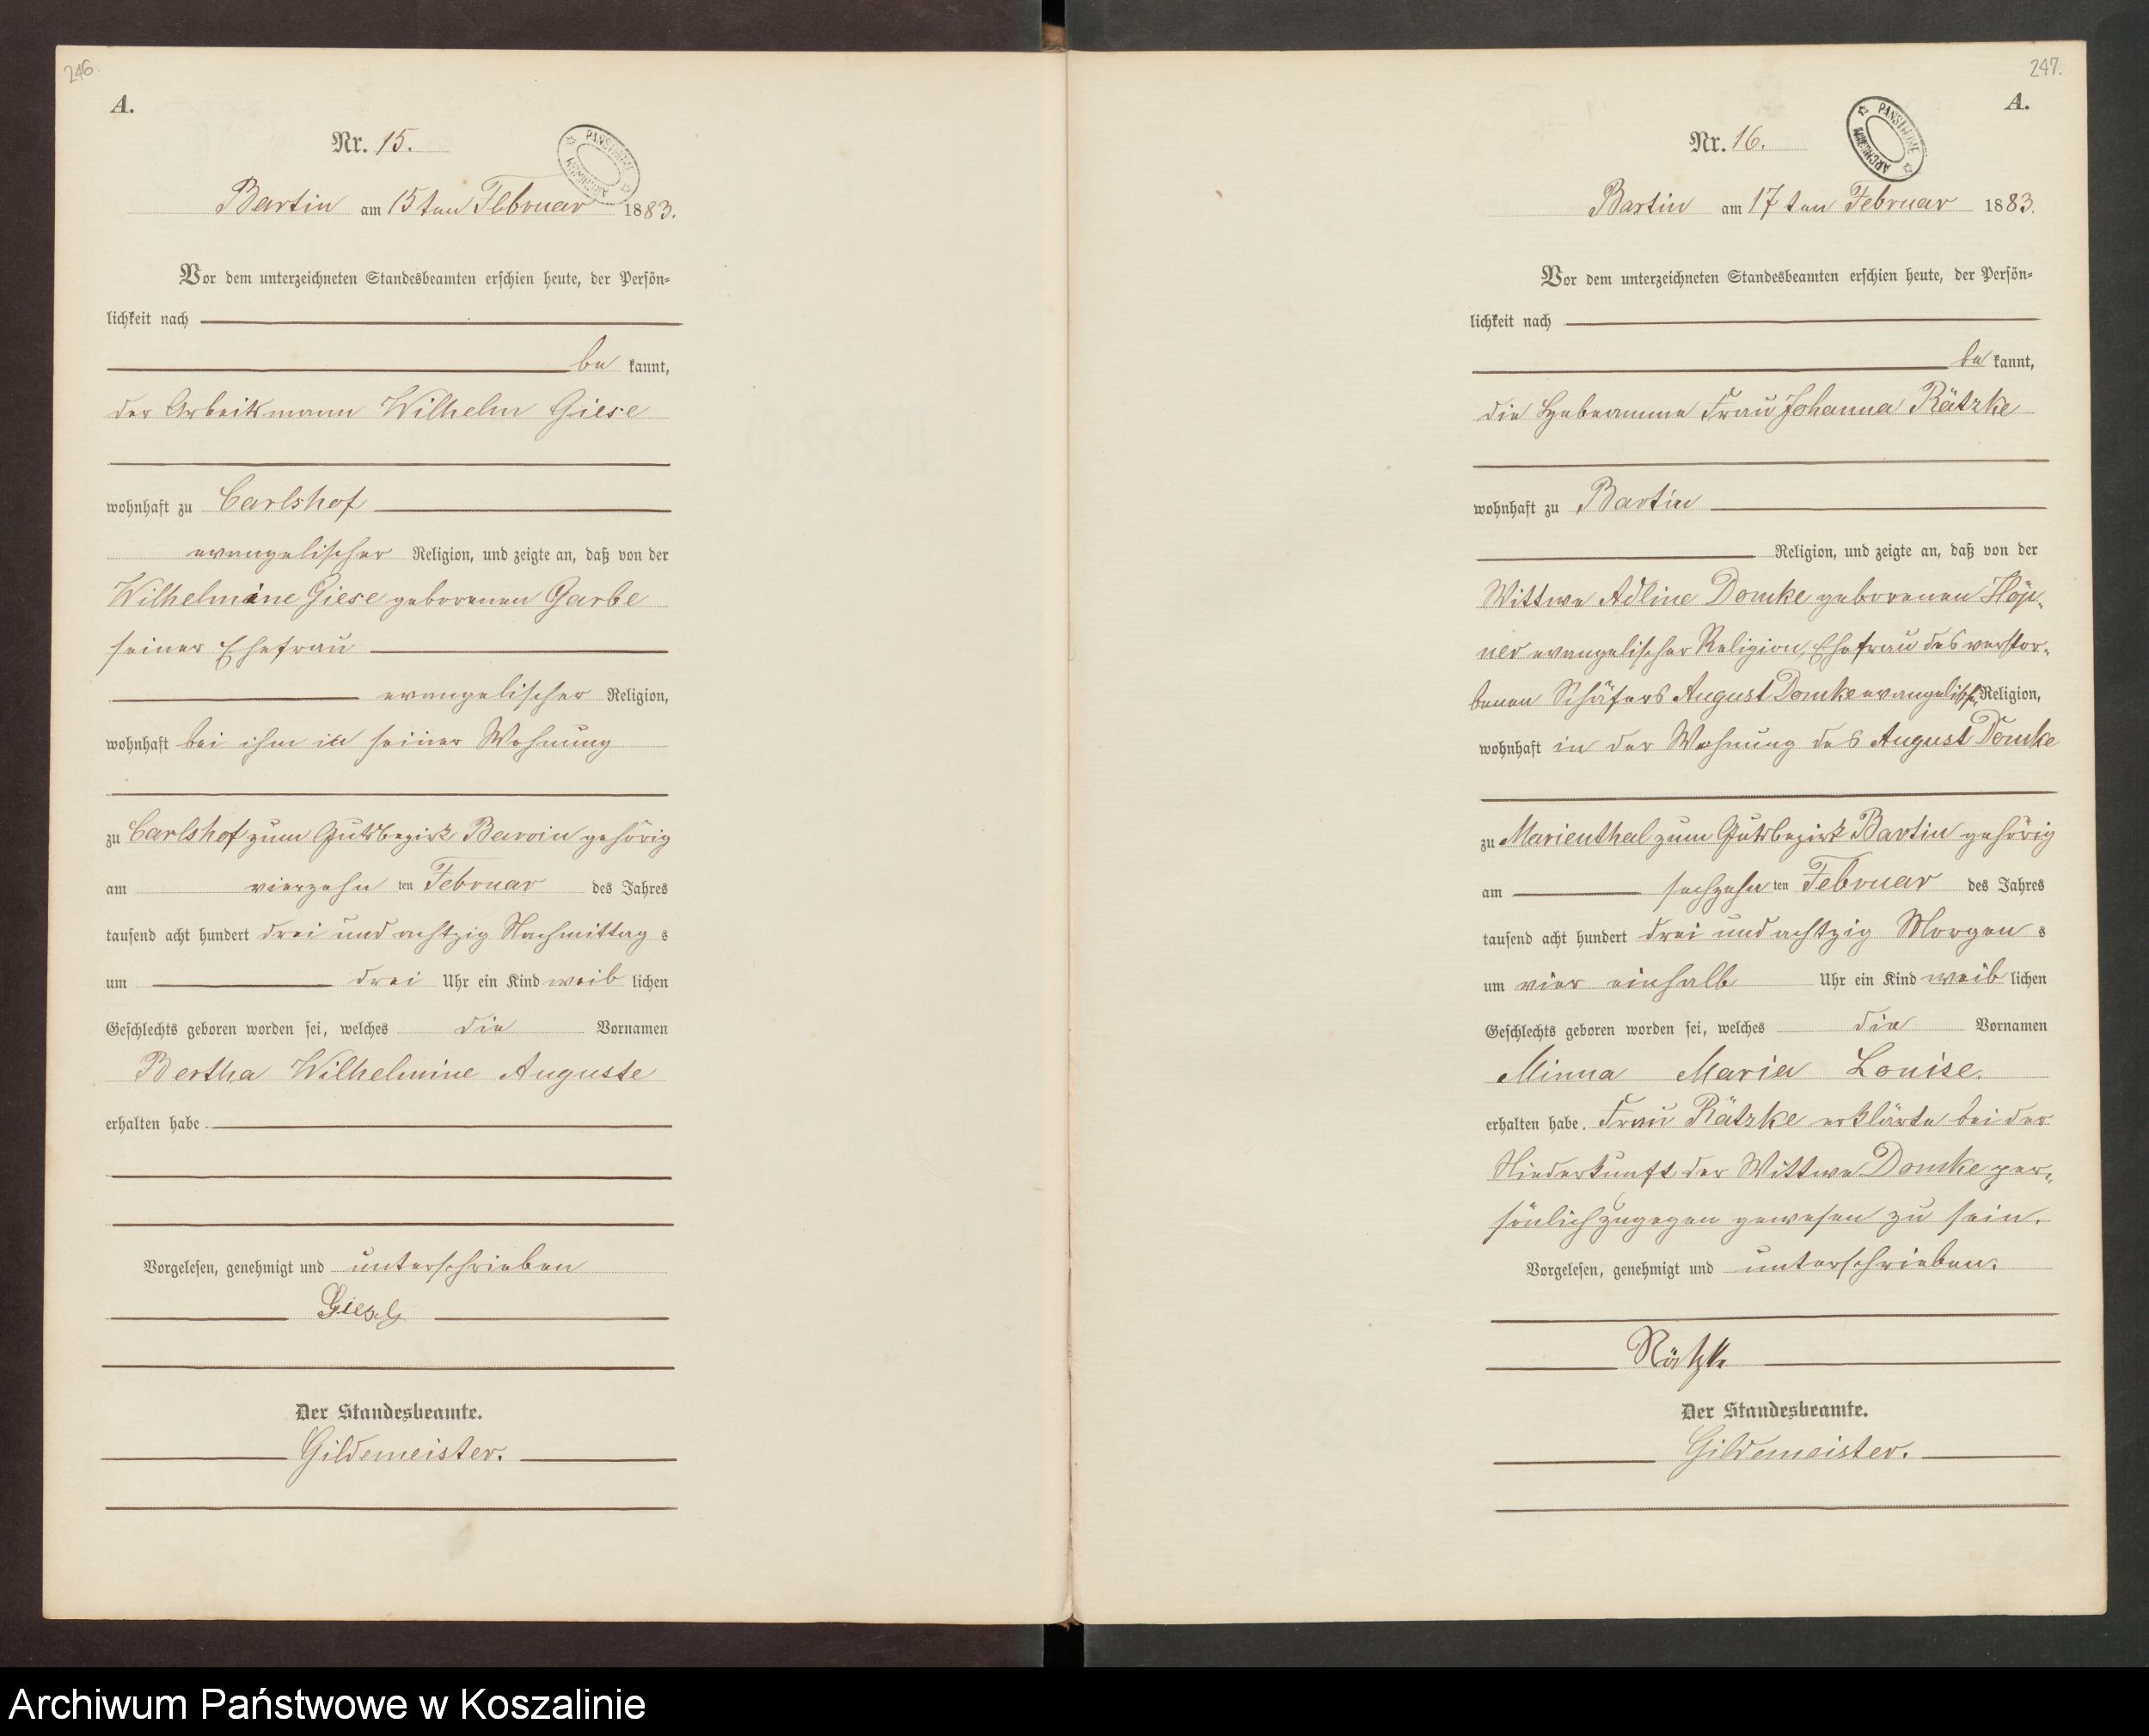 246.
A.
Nr. 15.
Bartin am 15ten Februar 1883.
Vor dem unterzeichneten Standesbeamten erschien heute, der Persön-
lichkeit nach
be kannt,
der Arbeitsmann Wilhelm Giese
wohnhaft zu Carlshof
evangelischer Religion, und zeigte an, daß von der
Wilhelmine Giese geborenen Garbe
seiner Ehefrau
evangelischer Religion,
wohnhaft bei ihm in seiner Wohnung
zu Carlshof zum Gutsbezirk Barvin gehörig
am vierzehn ten Februar des Jahres
tausend acht hundert drei und achtzig Nachmittag s
um drei Uhr ein Kind weib lichen
Geschlechts geboren worden sei, welches die Vornamen
Bertha Wilhelmine Auguste
erhalten habe.
Vorgelesen, genehmigt und unterschrieben
Giese
Der Standesbeamte.
Gildemeister.
PAŃSTWOWE ARCHIWUM
247.
A.
Nr. 16.
Bartin am 17ten Februar 1883.
Vor dem unterzeichneten Standesbeamten erschien heute, der Persön-
lichkeit nach
be kannt,
die Hebeamme Frau Johanna Rätzke
wohnhaft zu Bartin
Religion, und zeigte an, daß von der
Wittwe Adline Domke geborenen Höp-
ner evangelischer Religion, Ehefrau des verstor-
benen Schäfers August Domke evangelisch. Religion,
wohnhaft in der Wohnung des August Domke
zu Marienthal zum Gutsbezirk Bartin gehörig
am sechzehn ten Februar des Jahres
tausend acht hundert drei und achtzig Morgen s
um vier einhalb Uhr ein Kind weib lichen
Geschlechts geboren worden sei, welches die Vornamen
Minna Maria Louise.
erhalten habe. Frau Rätzke erklärte bei der
Niederkunft der Wittwe Domke per-
sönlich zugegen gewesen zu sein.
Vorgelesen, genehmigt und unterschrieben.
Rätzke
Der Standesbeamte.
Gildemeister.
PAŃSTWOWE ARCHIWUM
Archiwum Państwowe w Koszalinie